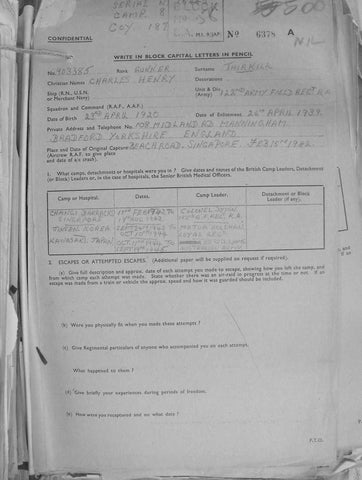 SERIAL N
CAMP 8
BLOCK
COY 187
CONFIDENTIAL
M.I. 9/JAP.
Nº 6378 A
NIL
WRITE IN BLOCK CAPITAL LETTERS IN PENCIL
No. 903385 Rank GUNNER Surname THIRKILL
Christian Names CHARLES HENRY Decorations
Ship (R.N., U.S.N. or Merchant Navy) Unit & Div. (Army) 122ND ARMY FIELD REGT R.A.
Squadron and Command (R.A.F., A.A.F.)
Date of Birth 23RD APRIL 1920 Date of Enlistment 26TH APRIL 1939
Private Address and Telephone No. 108 MIDLAND RD MANNINGHAM
BRADFORD YORKSHIRE ENGLAND
Place and Date of Original Capture BEACH ROAD, SINGAPORE FEB 15TH 1942
(Aircrew R.A.F. to give place
and date of air crash).
1. What camps, detachments or hospitals were you in? Give dates and names of the British Camp Leaders, Detachment
(or Block) Leaders or, in the case of hospitals, the Senior British Medical Officers.
Camp or Hospital. Dates. Camp Leader. Detachment or Block
Leader (if any).
CHANGI BARRACKS
SINGAPORE
COLONEL
R.A.
KOREA
MAJOR
KAWASAKI JAPAN
2. ESCAPES OR ATTEMPTED ESCAPES. (Additional paper will be supplied on request if required).
(a) Give full description and approx. date of each attempt you made to escape, showing how you left the camp, and
from which camp each attempt was made. State whether there was an air-raid in progress at the time or not. If an
escape was made from a train or vehicle the approx. speed and how it was guarded should be included.
(b) Were you physically fit when you made these attempts?
(c) Give Regimental particulars of anyone who accompanied you on each attempt.
What happened to them?
(d) Give briefly your experiences during periods of freedom.
(e) How were you recaptured and on what date?
P.T.O.